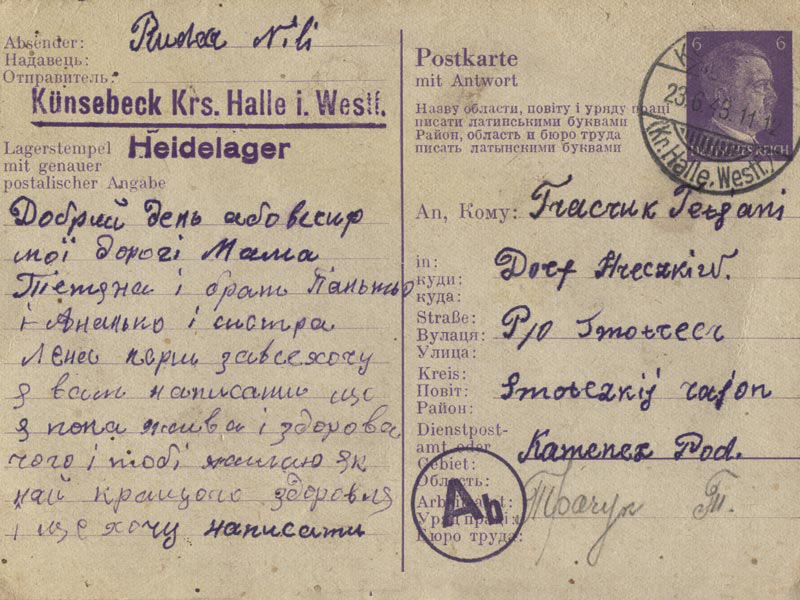 Absender: Rudka Nili
Надавець:
Отправитель:
Künsebeck Krs. Halle i. Westf.
Lagerstempel Heidelager
mit genauer
postalischer Angabe
Добрий день або вечир
мої дорогі Мама
Тетяна і брат Панько
і Ананько і систра
Лена перш за все хочу
я вам написати що
я пока жива і здорова
чого і тобі желаю як
най кращого здоровля
і ще хочу написати
Postkarte
mit Antwort
Назву области, повіту і уряду праці
писати латинськими буквами
Район, область и бюро труда
писать латынскими буквами
6 6
23.6.43.11-12
(Kr. Halle, Westf.)
An, Кому: Tkaczuk Tetjani
in: Dorf Hreczkiw.
куди:
куда:
Straße: P/o Smotrecz
Вулаця:
Улица:
Kreis: Smotreczkij rajon
Повіт:
Район:
Dienstpost-
amt oder Kamenez Pod.
Gebiet:
Область:
Arbeitsamt: Т.
Уряд праці:
Бюро труда:
Ab